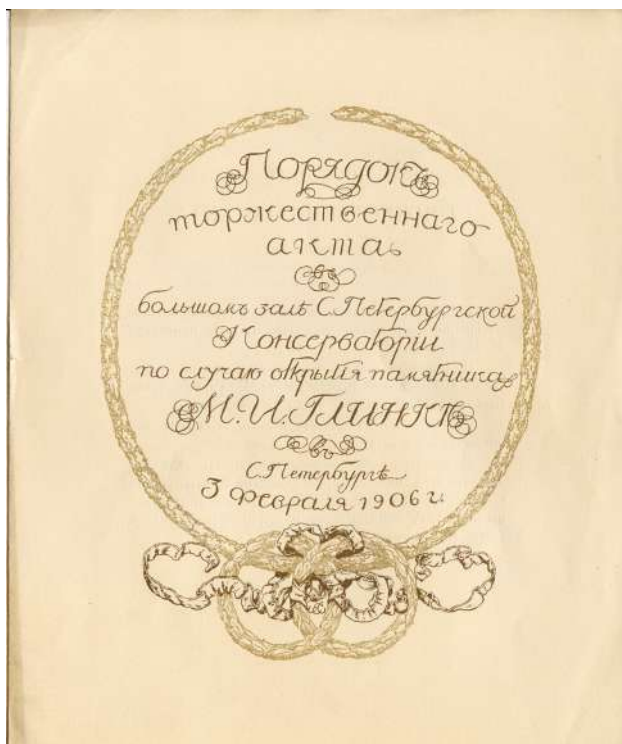 Порядокъ
торжественнаго
акта
въ
большомъ залѣ С.Петербургской
Консерваторіи
по случаю открытія памятника
М.И.ГЛИНКѢ
въ
С.Петербургѣ
3 Февраля 1906 г.